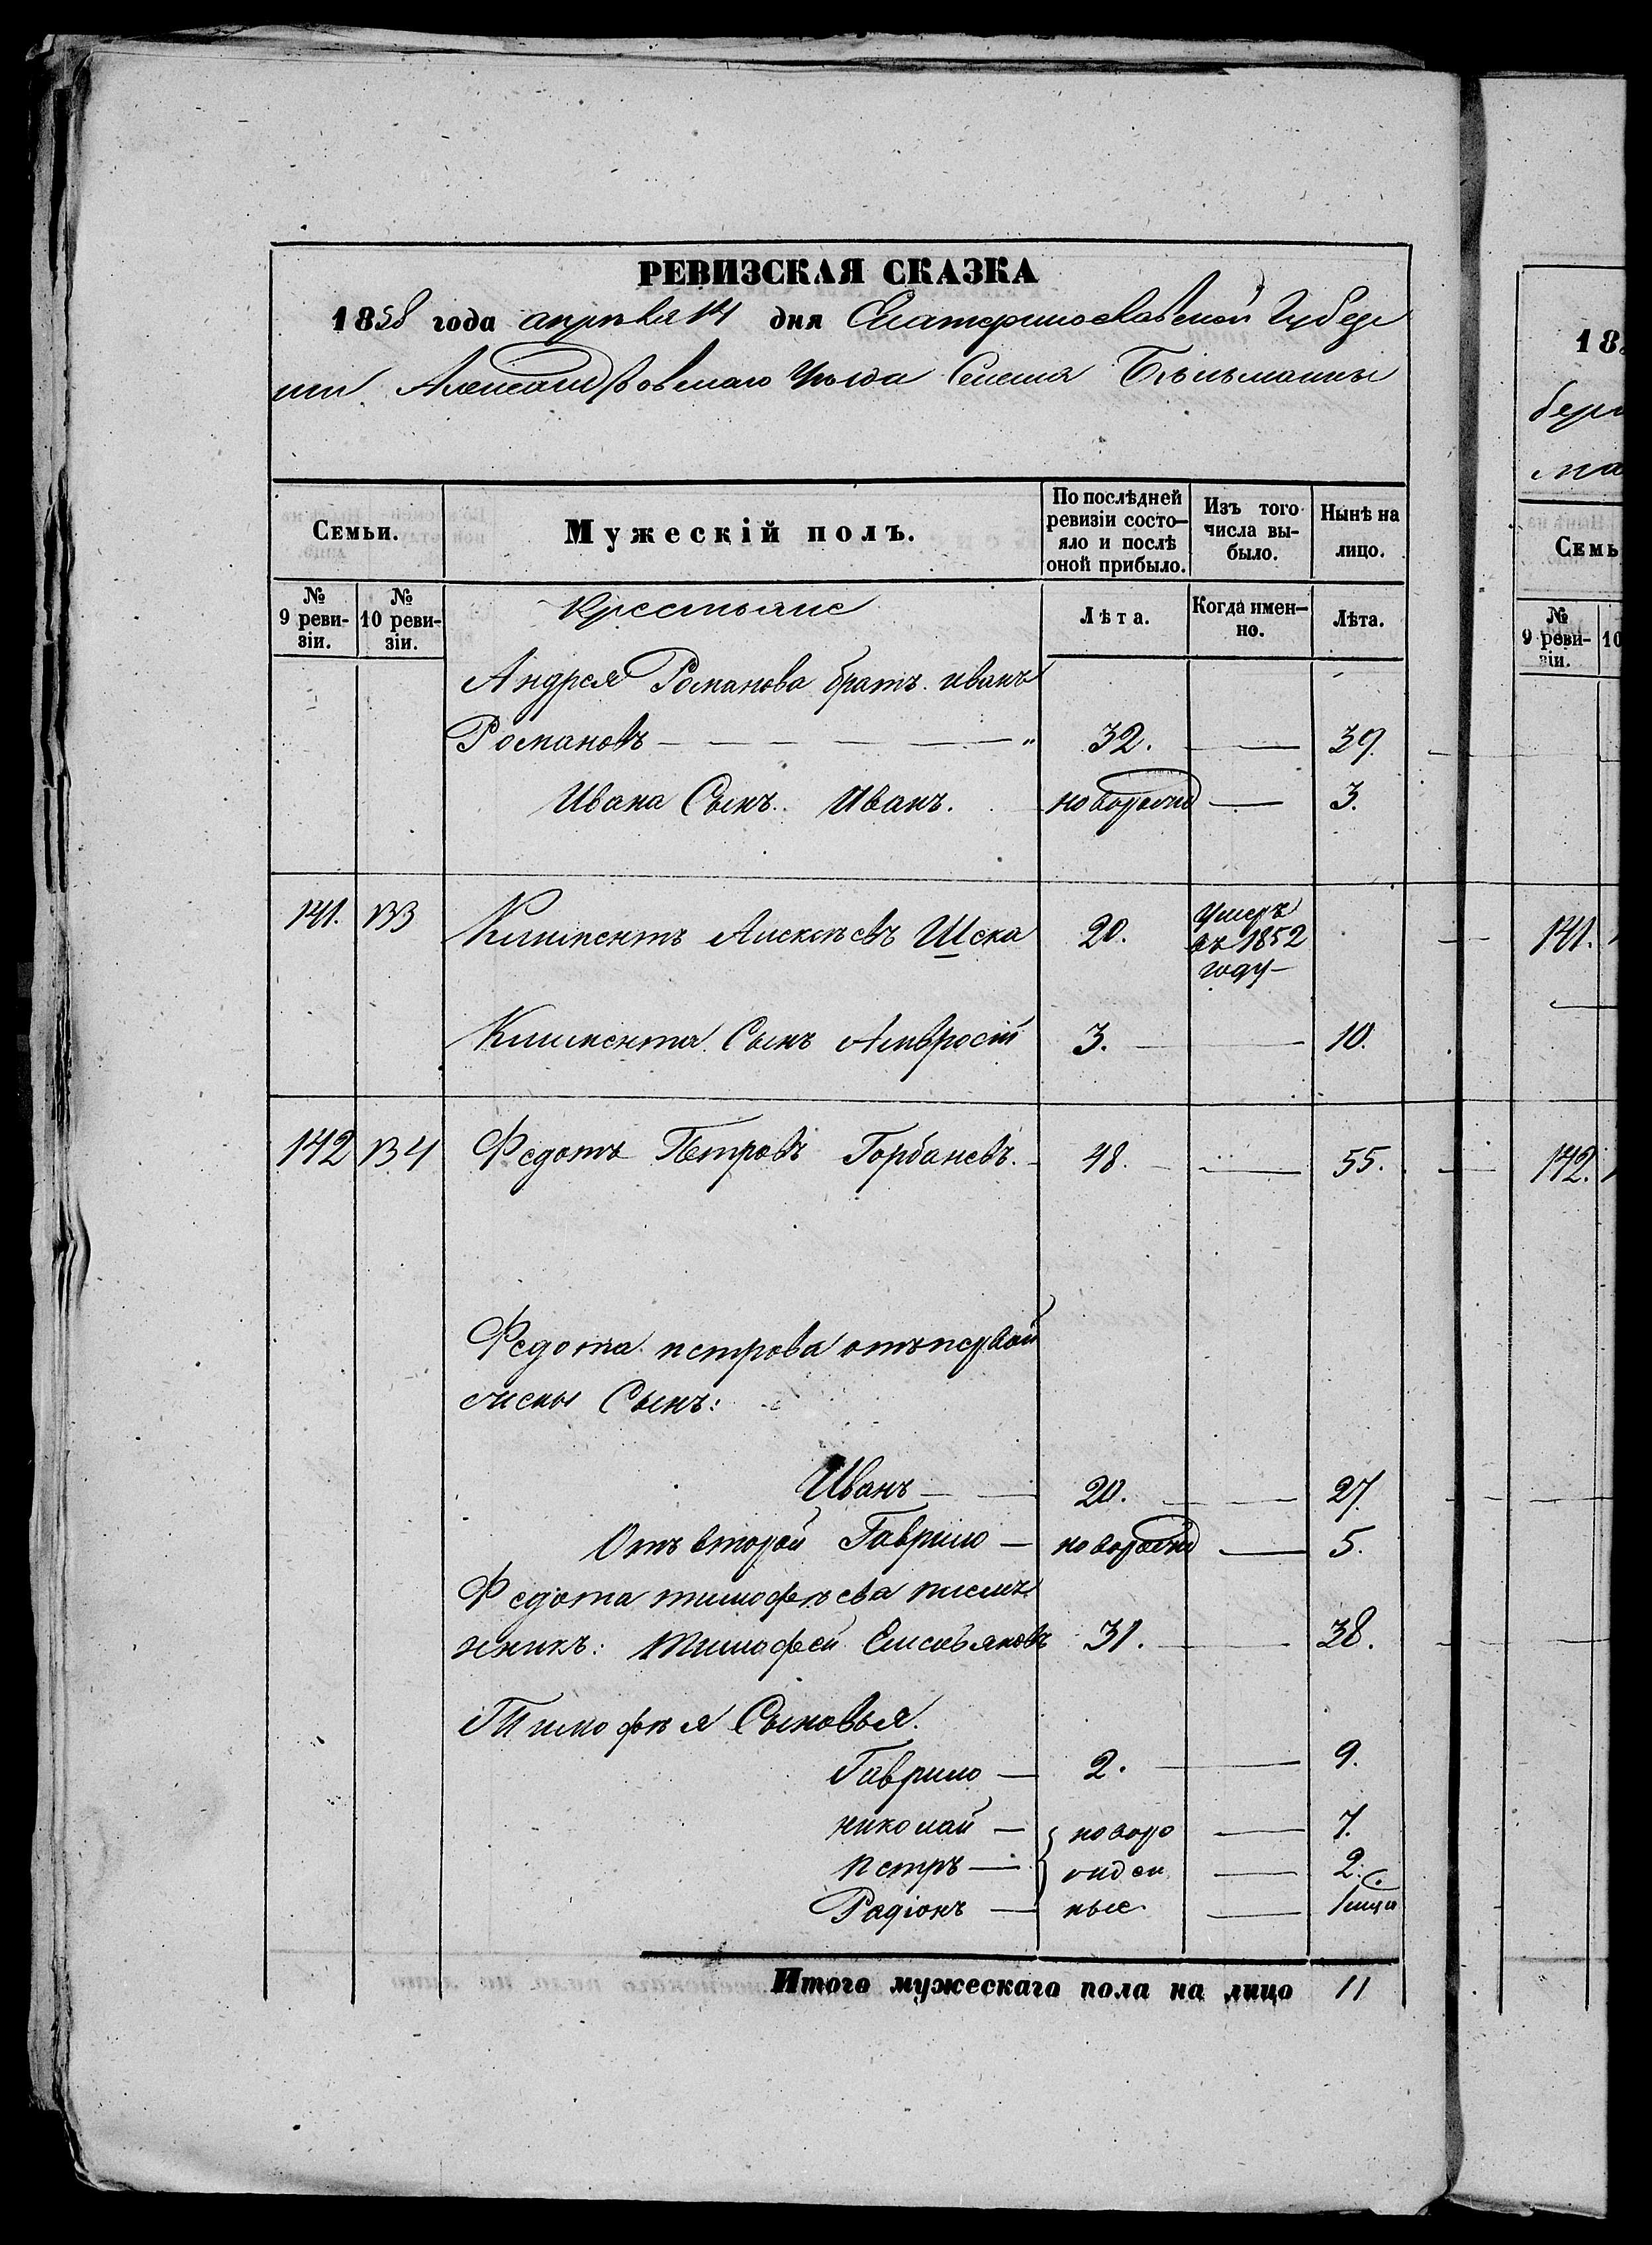 РЕВИЗСКАЯ СКАЗКА
1858 года апреля 14 дня Екатеринославской Губер
нии Александровскаго Уезда Селения Бѣльманки
Семьи. Мужескій полъ. По послѣдней ревизіи состо- яло и послѣ оной прибыло. Изъ того числа вы- было. Нынѣ на лицо.
№ 9 реви- зіи. № 10 реви- зіи. Крестьяне Лѣта. Когда имен- но. Лѣта.
Андрея Романова братъ иванъ
Романовъ — 32. — 39.
Ивана Сынъ Иванъ. новорожд — 3.
141. 133 Климентъ Алексѣевъ 20. Умеръ въ 1852 году —
Климента Сынъ Амвросій 3. — 10.
142 134 Федотъ Петровъ Горбаневъ. 48. — 55.
Федота петрова отъ первой
жены Сынъ:
Иванъ — 20. — 27.
Отъ второй Гаврило — новорожд — 5.
Федота тимофѣева племя
нникъ: тимофей 31. — 38.
Тимофѣя Сыновья.
Гаврило — 2. — 9.
николай — новоро — 7.
петръ — жден — 2.
Радіонъ — ные. —
Итого мужескаго пола на лицо 11
18
бер
ма
Семь
№ 9 реви- зіи. 10
141.
142.